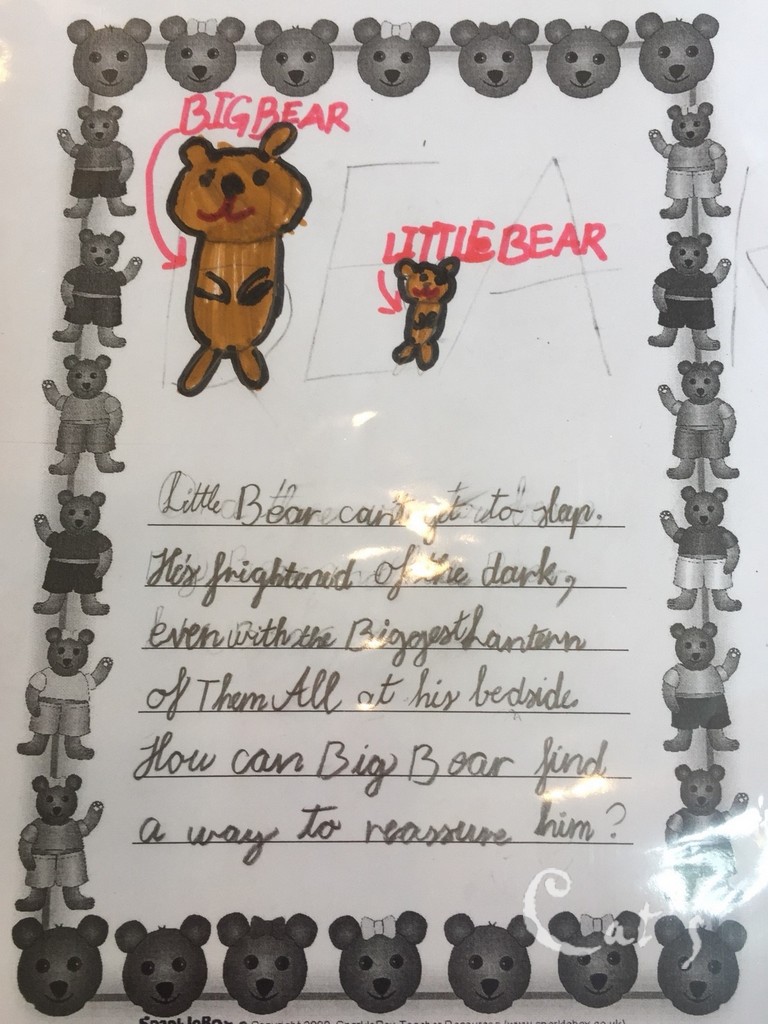 BIG BEAR
LITTLE BEAR
Little Bear can't get to sleep.
He's frightened of the dark,
even with the Biggest Lantern
of Them All at his bedside.
How can Big Boar find
a way to reassure him?
Cat's
SparkleBox
Copyright 2008, SparkleBox Teacher Resources (www.sparklebox.co.uk)